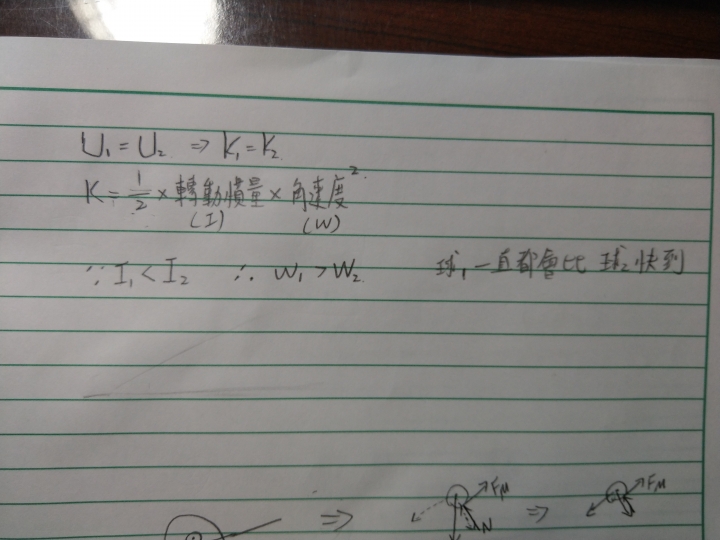 U₁ = U₂ ⇒ K₁ = K₂
K = 1/2 × 轉動慣量 × 角速度²
(I) (W)
∵ I₁ < I₂ ∴ W₁ > W₂ 球₁一直都會比 球₂快到
⇒ Fμ N ⇒ Fμ